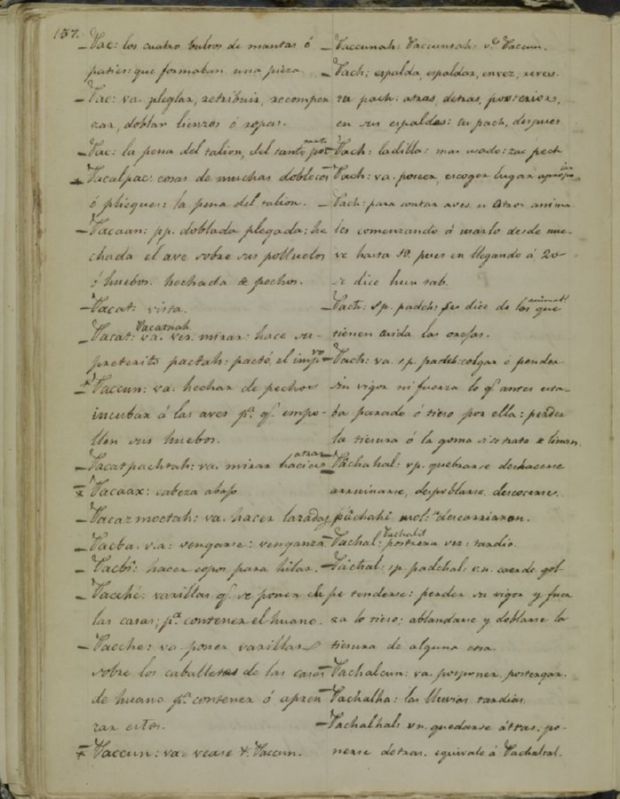 137.
Pac: los cuatro bultos de mantas ó
paties que formaban una pieza
Pac: va. plegar, retribuir, recompen
zar, doblar lienzos ó ropas.
Pac: la pena del talion, del tanto por tanto
Pacalpac: cosas de muchas dobleces
ó pliegues: la pena del talion.
Pacaan: pp. doblada plegada: he
chada el ave sobre sus polluelos
ó huebos. hechada de pechos.
Pacat: vista.
Pacat: Pacatnah va. ver. mirar: hace su
preterito pactah: pacté, el impvo
Paccun: va. hechar de pechos
incubar á las aves pa. qe. empo
llen sus huebos.
Pacatpachtah: va. mirar hacia atras
Pacaax: cabeza abajo
Pacazmoctah: va. hacer lazadas
Pacba. v.a: vengarse: venganza
Pacbi: hacer copos para hilar.
Pacché: varillas qe. se ponen en
las casas; pa. contener el huano.
Pacche: va. poner varillas
sobre los caballetes de las casas
de huano pa. contener ó apren
zar estos.
Paccun: va. vease V. Paccun.
Paccunah: Paccuntah: ve. Paccun.
Pach: espalda, espaldar, envez, reves.
tu pach: atras, detras, posteriores,
en sus espaldas: tu pach, despues
Pach: ladilla: mas usado: zac pech
Pach: va. poseer, escoger lugar apropiar
Pach: para contar aves. u otros anima
les comenzando á usarlo desde nue-
ve hasta 19, pues en llegando á 20-
se dice hun
Pach: sp. padch: se dice de los animals. que
tienen caida las orejas.
Pach: va. sp. padch: colgar ó pender
sin vigor ni fuerza lo qe. antes esta-
ba parado ó tieso por ella: perder
la tiesura ó la goma si se trata de
Pachahal: vp. quebrarse deshacerse
arruinarse, despoblarse. descocerse.
pachahi descarriaron.
Pachal: Pachalil postrera vez: tardio.
Pachal: sp. padchal: v.n. caerde gol-
pe tenderse: perder su vigor y fuer
za lo tieso: ablandarse y doblarse la
tiesura de alguna cosa.
Pachalcun: va. posponer, postergar.
Pachalha: las lluvias tardias.
Pachalhal: vn. quedarse átras, po-
nerse detras. equivale á Pachalhal.